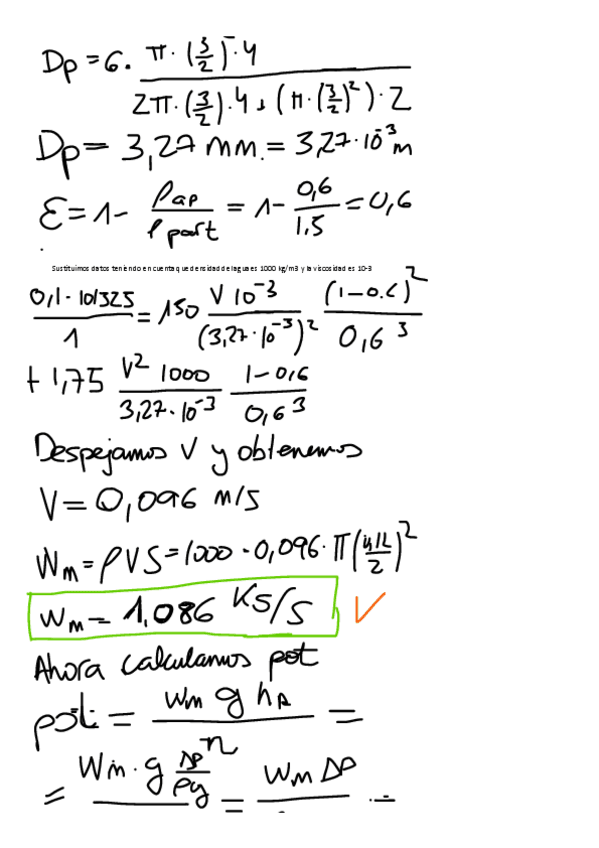 Dp = 6 · π · (3/2)² · 4 / 2π · (3/2) · 4 + (π · (3/2)²) · 2
Dp = 3,27 mm. = 3,27 · 10⁻³ m
ε = 1 - ρap / ρpart = 1 - 0,6 / 1,5 = 0,6
Sustituimos datos teniendo en cuenta que densidad de lagua es 1000 kg/m3 y la viscosidad es 10-3
0,1 · 101325 / 1 = 150 V 10⁻³ / (3,27 · 10⁻³)² (1 - 0.6)² / 0,6³
+ 1,75 V² 1000 / 3,27 · 10⁻³ 1 - 0,6 / 0,6³
Despejamos V y obtenemos
V = 0,096 m/s
Wm = ρVS = 1000 · 0,096 · π ( / 2)²
Wm = 1,086 KS/S ✓
Ahora calculamos pot
pot = Wm g hB / =
= Wm · g ΔP/ρg / η = Wm ΔP / =